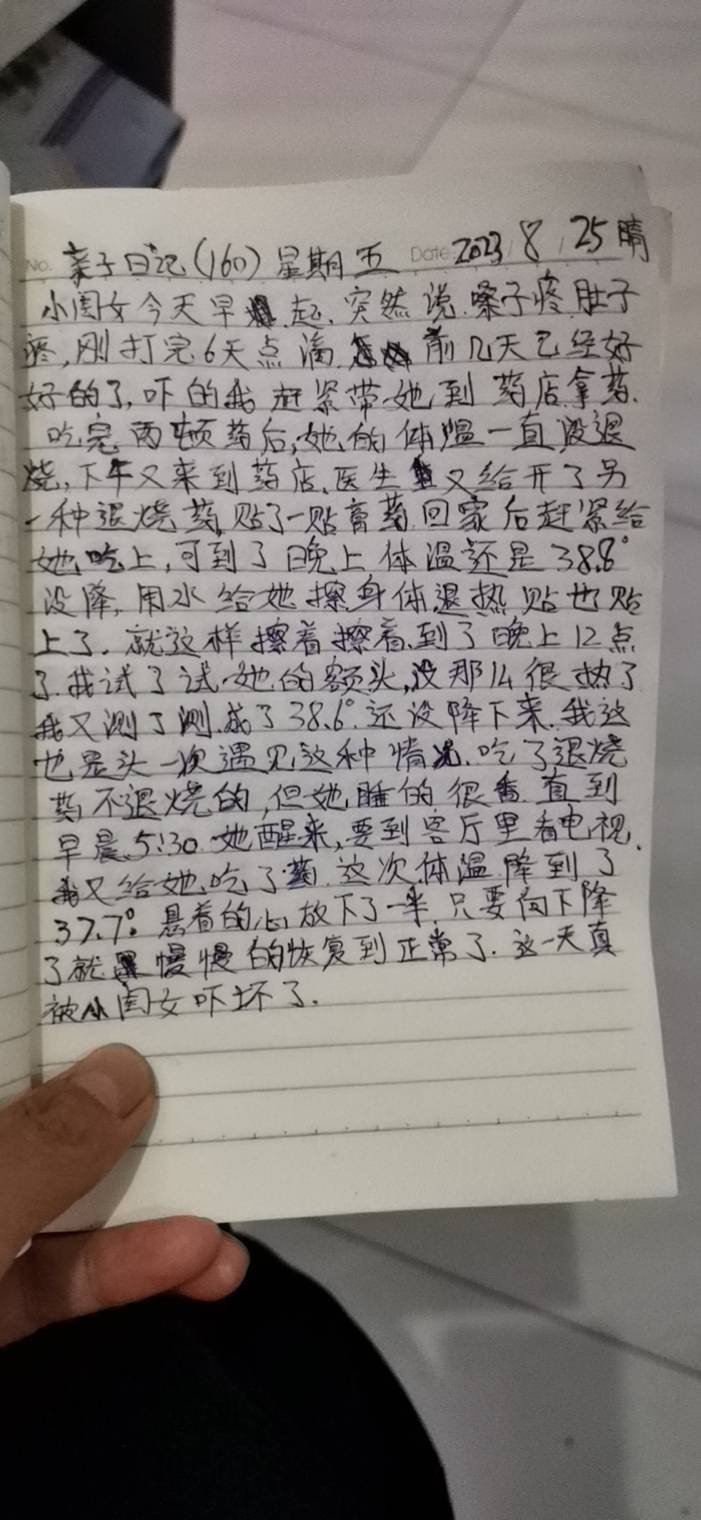 No. 亲子日记(160) 星期五 Date 2023 / 8 / 25 晴
小闺女今天早起,突然说嗓子疼,肚子
疼,刚打完6天点滴,前几天已经好
好的了,吓的我赶紧带她到药店拿药.
吃完两顿药后,她的体温一直没退
烧,下午又来到药店,医生又给开了另
一种退烧药,贴了一贴膏药,回家后赶紧给
她吃上,可到了晚上体温还是38.8°
没降,用水给她擦身体,退热贴也贴
上了.就这样擦着擦着,到了晚上12点
了.我试了试她的额头,没那么很热了
我又测了测,成了38.6°.还没降下来.我这
也是头一次遇见这种情况.吃了退烧
药不退烧的,但她睡的很香,直到
早晨5:30她醒来,要到客厅里看电视.
我又给她吃了药.这次体温降到了
37.7°.悬着的心放下了一半.只要向下降
了就慢慢的恢复到正常了.这一天真
被小闺女吓坏了.